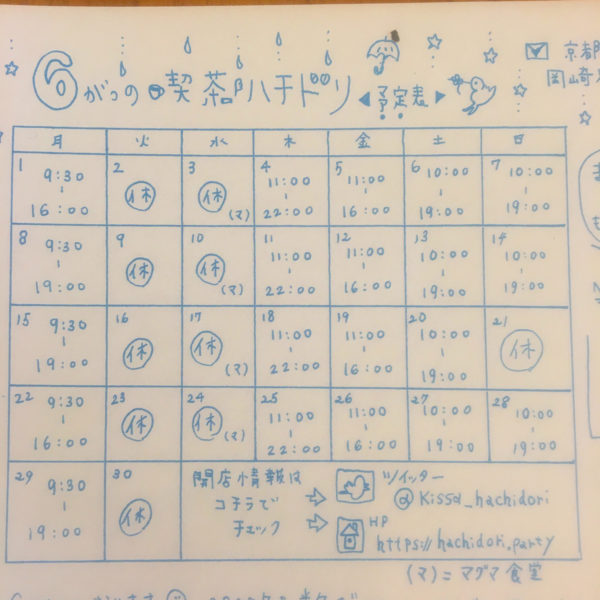 6がつの喫茶ハチドリ ◀予定表▶
☑ 京都
岡崎
月 火 水 木 金 土 日
1 9:30 - 16:00
2 休
3 休 (マ)
4 11:00 - 22:00
5 11:00 - 16:00
6 10:00 - 19:00
7 10:00 - 19:00
8 9:30 - 19:00
9 休
10 休 (マ)
11 11:00 - 22:00
12 11:00 - 16:00
13 10:00 - 19:00
14 10:00 - 19:00
15 9:30 - 19:00
16 休
17 休 (マ)
18 11:00 - 22:00
19 11:00 - 16:00
20 10:00 - 19:00
21 休
22 9:30 - 16:00
23 休
24 休 (マ)
25 11:00 - 22:00
26 11:00 - 16:00
27 10:00 - 19:00
28 10:00 - 19:00
29 9:30 - 19:00
30 休
開店情報は
コチラで
チェック
ツイッター
@kissa_hachidori
HP
https://hachidori.party
(マ)=マグマ食堂